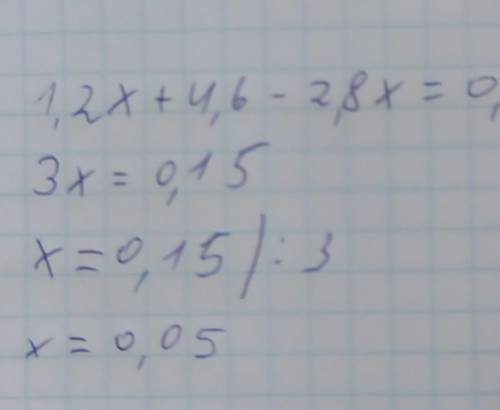 1,2x + 4,6 - 2,8x = 0,
3x = 0,15
x = 0,15 | : 3
x = 0,05